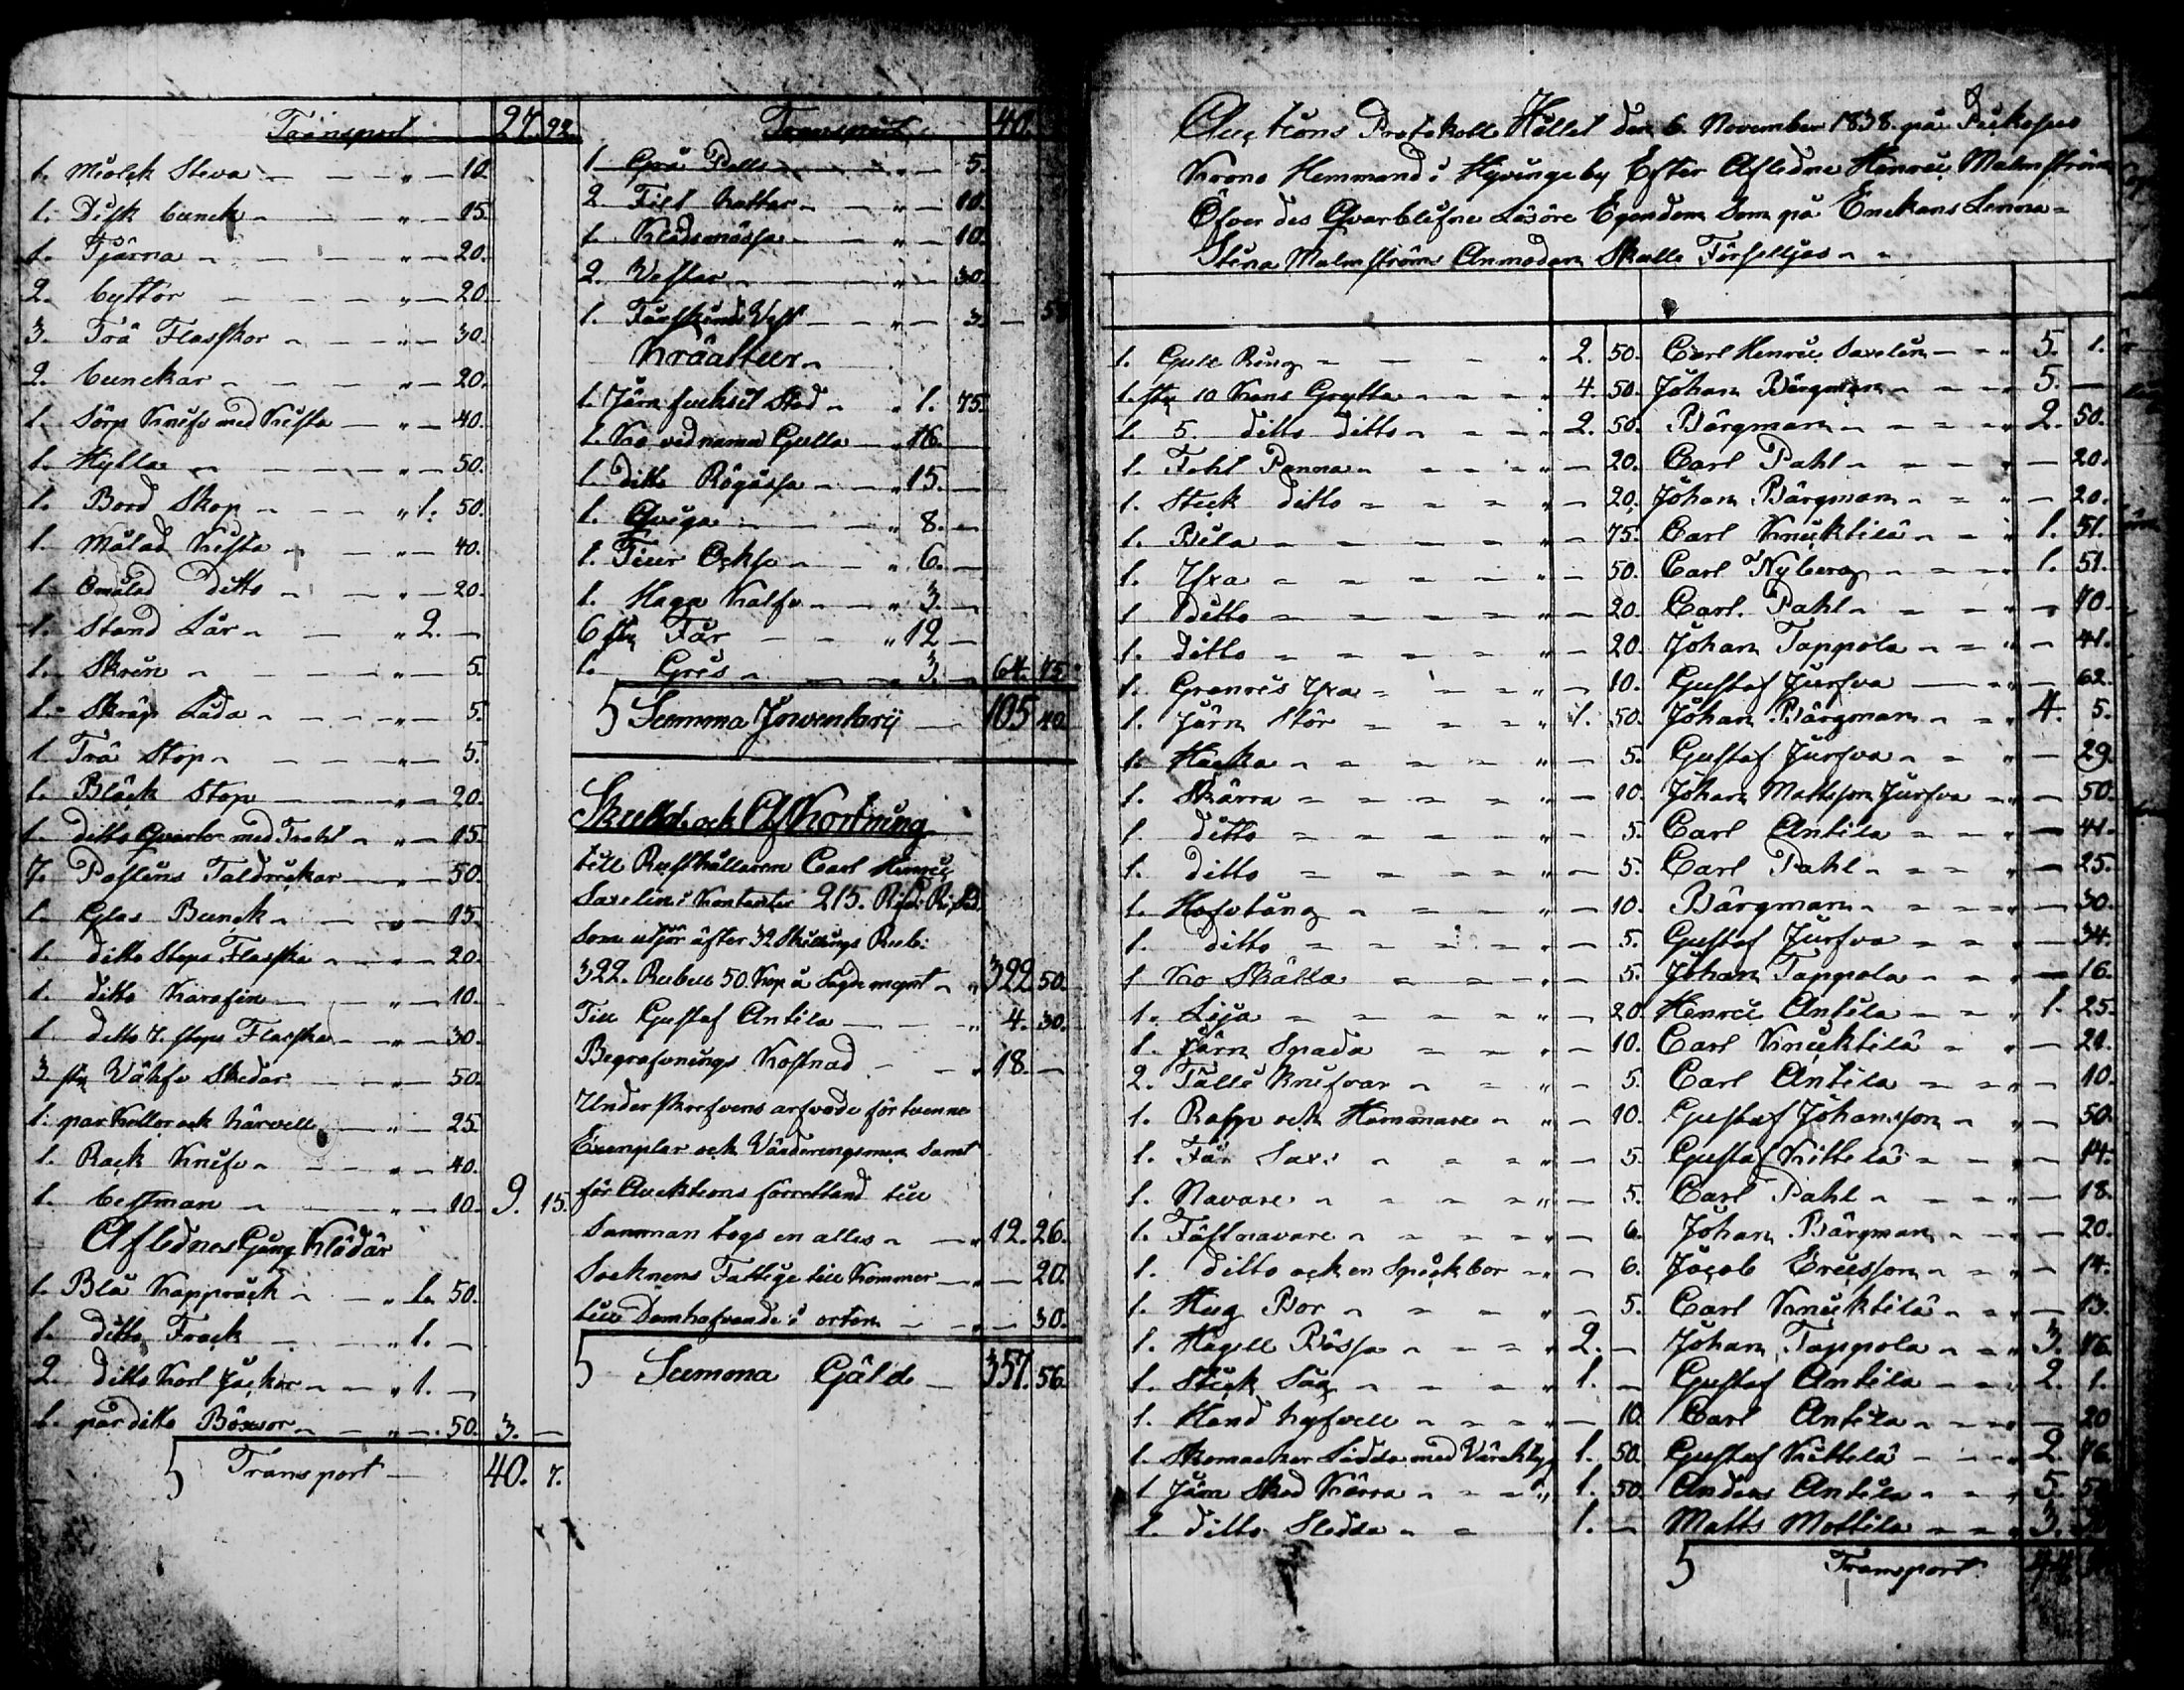 Transport 27. 92.
1. Miolck Steva " — 10.
1. Disk bunck " — 15.
1. Tjärna " — 20.
2. byttor " — 20.
3. Trä Flasskor " — 30.
2. bunckar " — 20.
1. Sörp Knifv med Kista " — 40.
1. Hylla " — 50.
1. Bord Skop " 1. 50.
1. Målad Kista " — 40.
1. Omålad ditto " — 20.
1. Stand Lår " 2. —
1. Skrin " — 5.
1. Skräp Låda " — 5.
1. Trä Stop " — 5.
1. Bläck Stop " — 20.
1. ditto Qvarter med Tratt " — 15.
7. Poslins Taldrickar " — 50.
1. Glas Bunck " — 15.
1. ditto Stops Flasska " — 20.
1. ditto Karafin " — 10.
1. ditto 7. stops Flasska " — 30.
3. st Wäfv Skedar " — 50.
1. par Kallor och härvell " — 25.
1. Rack Knifv " — 40.
1. bessman " — 10. 9. 15.
Aflednes Gång Klädär
1. Blå Kappräck " 1. 50.
1. ditto Frack " 1. —
2. ditto Kort Jackor " 1. —
1. par ditto Böxor " — 50. 3. —
5 Transport 40. 7.
Transport 40.
1 Grå Palto " — 5.
2 Filt hattar " — 10.
1. Klädsmössa " — 10.
2. Vestar " — 30.
1. Fårskinds Väst " — 3. —
Kräatur
1. Järn Stod " 1. 75.
1. Ko vid namn Gulla " 16. —
1. ditto Rögåssa " 15. —
1. Qviga " 8. —
1. Tiur Ockso " 6. —
1. Haga Kalfv " 3. —
6 st Får " 12 —
1. Gris " 3. — 64. 75
5 Summa Inventarij 105 40
Skuld och Afkortning
till Rusthållaren Carl Henric
Saxelin i Kontanter 215. Rd. Rgs.
Som utjör äfter 32 Skillings Rub:
322. Rubus 50. Kop å Sagde mynt " 322. 50.
Till Gustaf Antila " 4. 30.
Begrafvnings Kostnad " 18. —
Underskrefvens arfvode för tvenne
Exemplar och Värderingsmen samt
för Auktions förrettand till
Samman togs en alles " 12. 26.
Socknens Fattige till Kommer " — 20.
till Domhafvande i orten " — 30.
5 Summa Gäld 357. 56.
Auctions Protokoll Hållet den 6. November 1838. på
Krono Hemmand i Hyvinge by Efter Afledne Henric Malmström
Öfver des Qvarblifne Lösöre Egendom som på Enckans Lenna-
Stina Malmströms Anmodan Skulle Förselljas
1. Gull Ring " 2. 50. Carl Henric Saxelin " 5. 1.
1. st 10 Kans Grytta " 4. 50. Johan Bärgman " 5. —
1. 5. ditto ditto " 2. 50. Bärgman " 2. 50.
1. Fohl Panna " — 20. Carl Pahl " — 20.
1. Steck ditto " — 20. Johan Bärgman " — 20.
1. Bila " — 75. Carl Knicktilä " 1. 51.
1. Yxa " — 50. Carl Nyberg " 1. 51.
1 Ditto " — 20. Carl. Pahl " — 70.
1. ditto " — 20. Johan Tappola " — 41.
1. Granris Yxa " — 10. Gustaf Jusfva " — 62.
1. Järn Stör " 1. 50. Johan Bärgman " 4. 5.
1. Hacka " — 5. Gustaf Jusfva " — 29.
1. Skärra " — 10. Johan Mattsson Jusfva " — 50.
1. ditto " — 5. Carl Antila " — 41.
1. ditto " — 5. Carl Pahl " — 25.
1. Hofvtång " — 10. Bärgman " — 30.
1. ditto " — 5. Gustaf Jusfva " — 34.
1 Ko Skälla " — 5. Johan Tappola " — 16.
1. Lija " — 20 Henric Antila " 1. 25.
1. Järn Spada " — 10. Carl Knicktilä " — 21.
2. Tälli knifvar " — 5. Carl Antila " — 10.
1. Rasp och Hammare " — 10. Gustaf Johansson " — 50.
1. Får Sax " — 5. Gustaf Kittelä " — 14.
1. Navare " — 5. Carl Pahl " — 18.
1. Fästnavare " — 6. Johan Bärgman " — 20.
1. ditto och en Spickbor " — 6. Jacob Ericsson " — 14.
1. Hug Bor " — 5. Carl Knicktilä " — 13.
1. Hagell Bössa " 2. — Johan Tappola " 3. 76.
1. Stick Såg " 1. — Gustaf Antila " 2. 1.
1. Hand hyfvell " — 10. Carl Antila " — 20
1. Skomacker Lådda med Värcktyg 1. 50. Gustaf Kittelä " 2. 76.
1 Järn Skod Kärra " 1. 50. Anders Antila " 5.
1. ditto Sledda " 1. — Matts Mottila " 3.
5 Transport